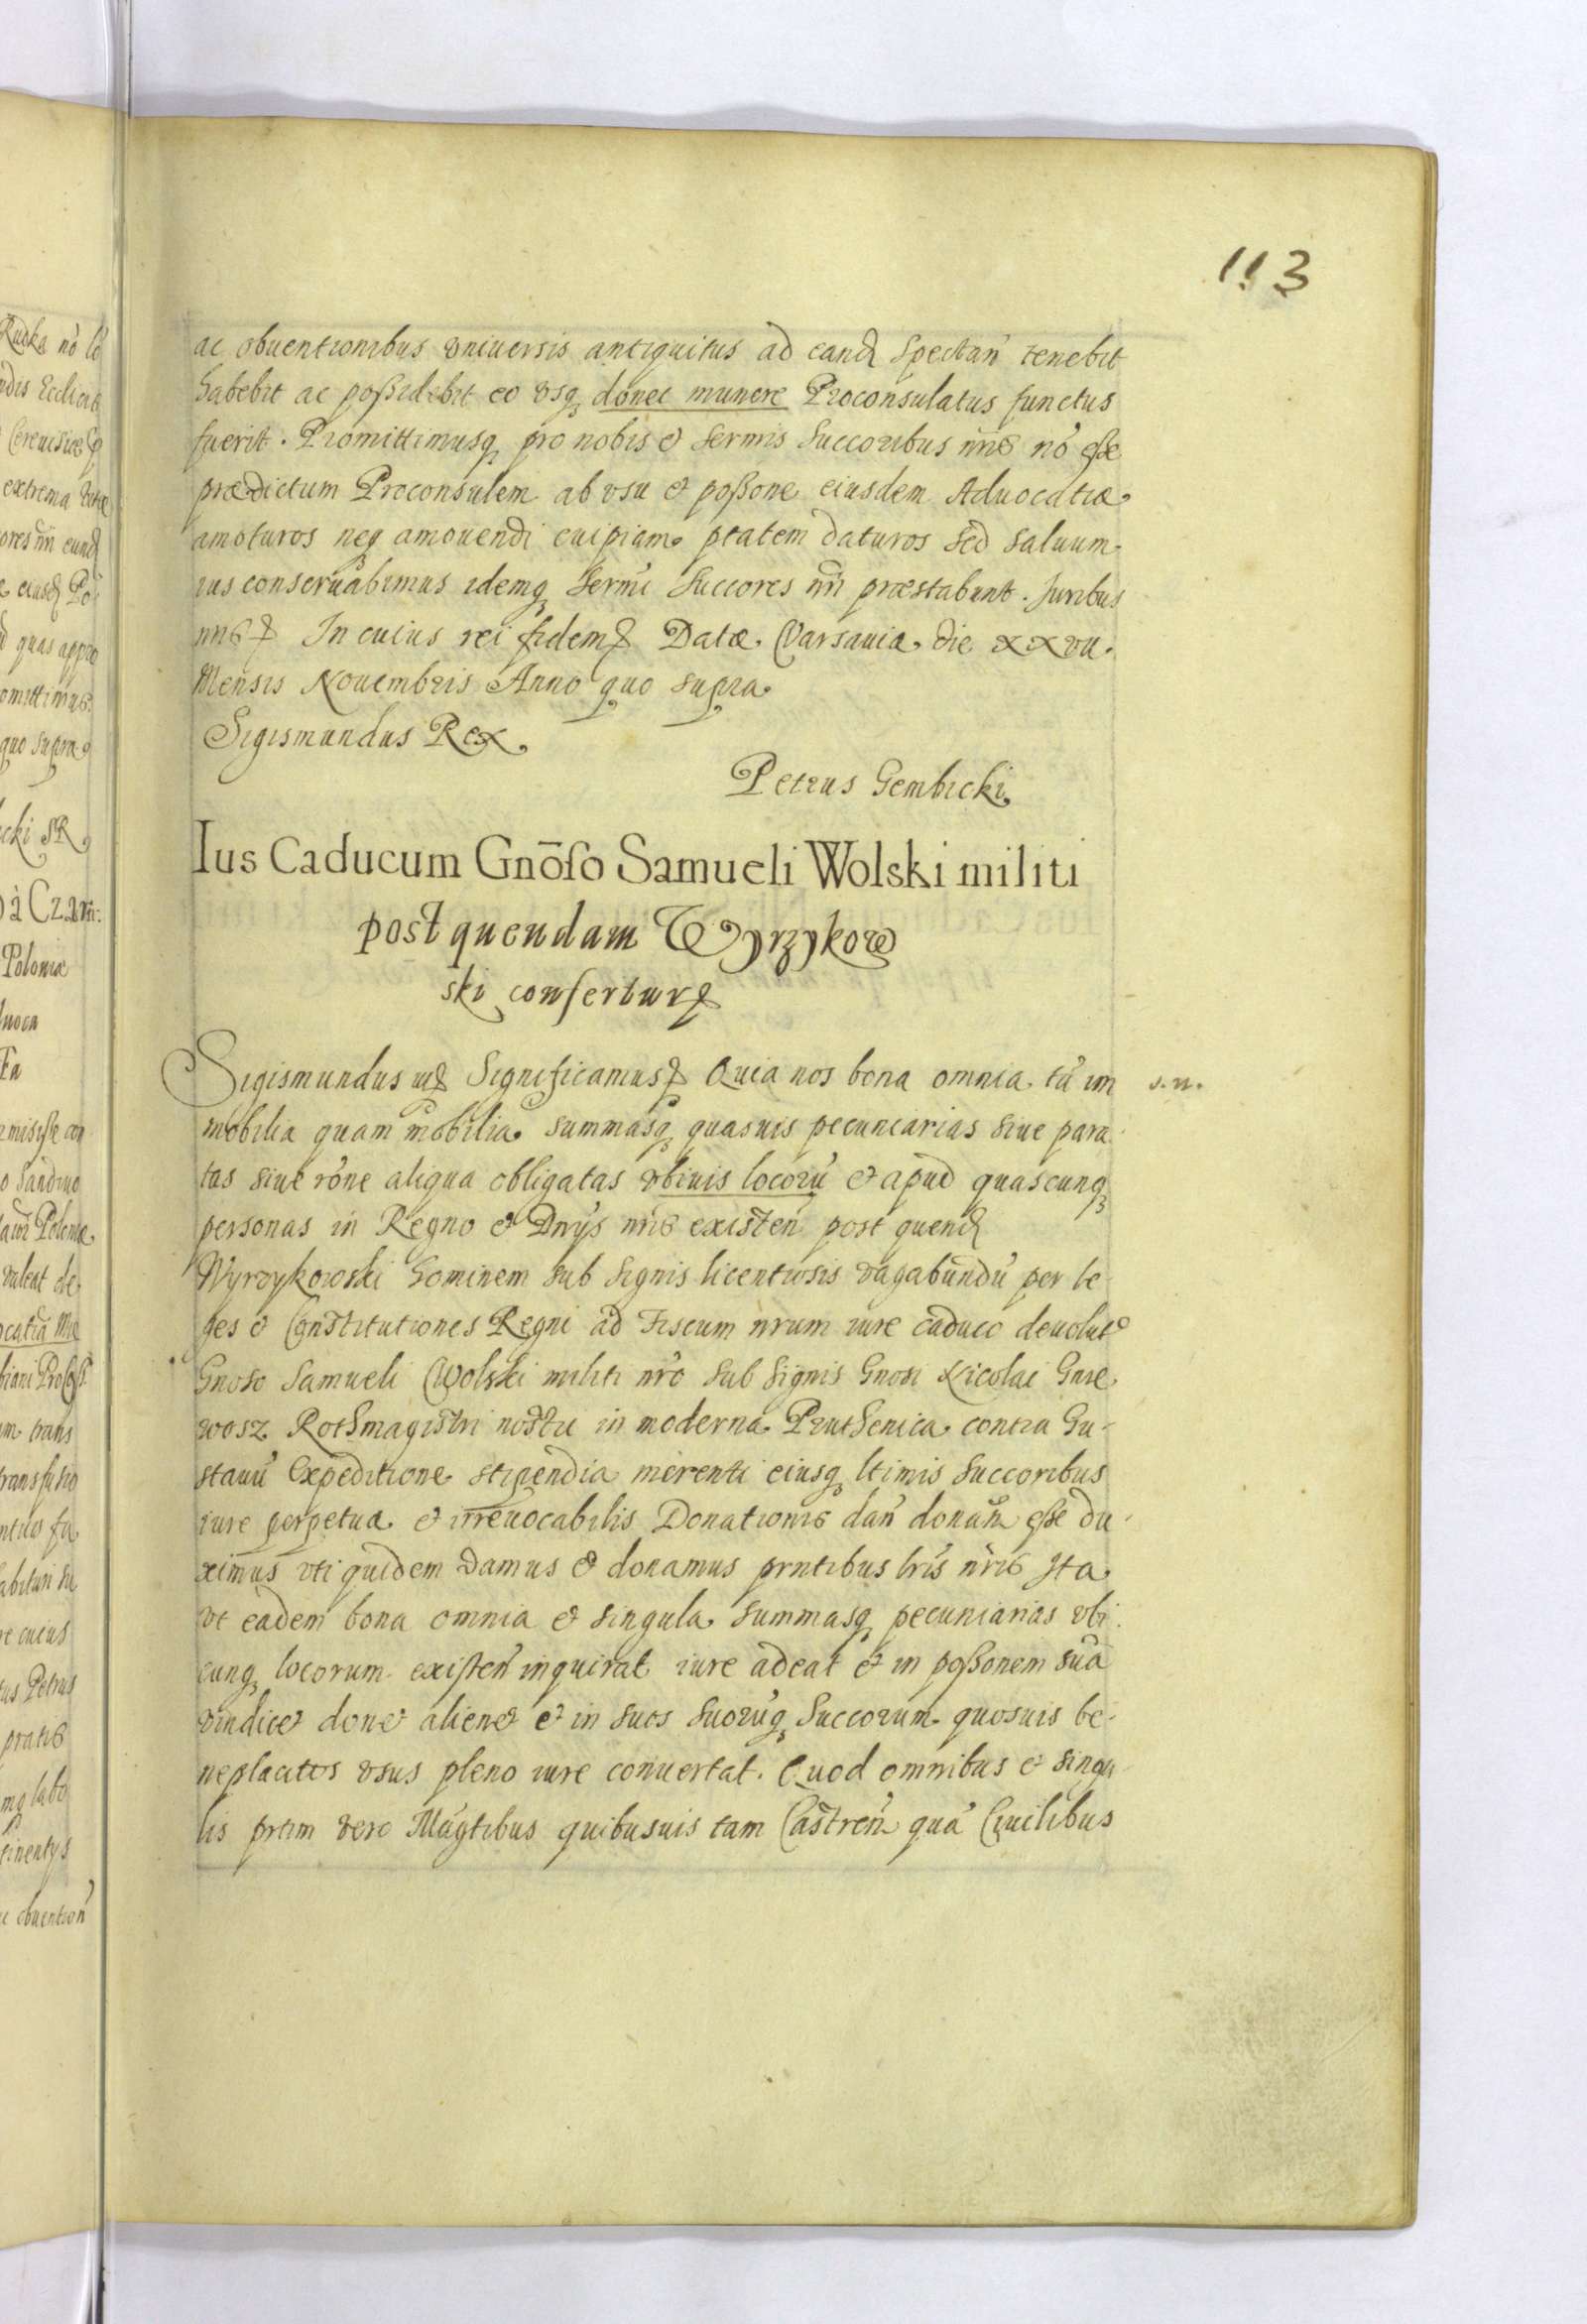 113
ac obuentionibus vniuersis antiquitus ad eand spectan̄ tenebit
habebit ac possidebit eo vsq donec munere Proconsulatus functus
fuerit. Promittimusq pro nobis et Sermis Succoribus nris nō esse
prædictum Proconsulem ab vsu et possone eiusdem Aduocatiæ
amoturos neq amouendi cuipiam ptatem daturos sed saluum
ius conseruabimus idemq Sermi Succores nri præstabunt. Juribus
nris In cuius rei fidem Datæ Varsauiæ die xxvii.
Mensis Nouembris Anno quo supra
Sigismundus Rex
Petrus Gembicki
Ius Caducum Gnōso Samueli Wolski militi
post quendam Wyrzykow
ski confertur
Sigismundus Significamus Quia nos bona omnia tū im
s. n.
mobilia quam mobilia summasq quasuis pecuniarias siue para
tas siue rōne aliqua obligatas vbiuis locorū et apud quascunq
personas in Regno et Dnijs nris existen̄ post quend
Wyrzykowski hominem sub signis licentiosis vagabundū per le
ges et Constitutiones Regni ad Fiscum nrum iure caduco deuoluto
Gnoso Samueli Wolski militi nrō sub signis Gnosi Nicolai Gnie
wosz Rothmagistri nostri in moderna Pruthenica contra Gu-
stauū Expeditione stipendia merenti eiusq ltimis Succoribus
iure perpetuæ et irreuocabilis Donationis dan̄ donan̄ esse du-
ximus vti quidem damus et donamus prntibus lris nris Ita
vt eadem bona omnia et singula summasq pecuniarias vbi
cunq locorum existen̄ inquirat iure adeat et in possonem suā
vindicet donet alienet et in suos suorūq Succorum quosuis be-
neplacitos vsus pleno iure conuertat. Quod omnibus et singu
lis prtim vero Magtibus quibusuis tam Castren̄ quā Ciuilibus